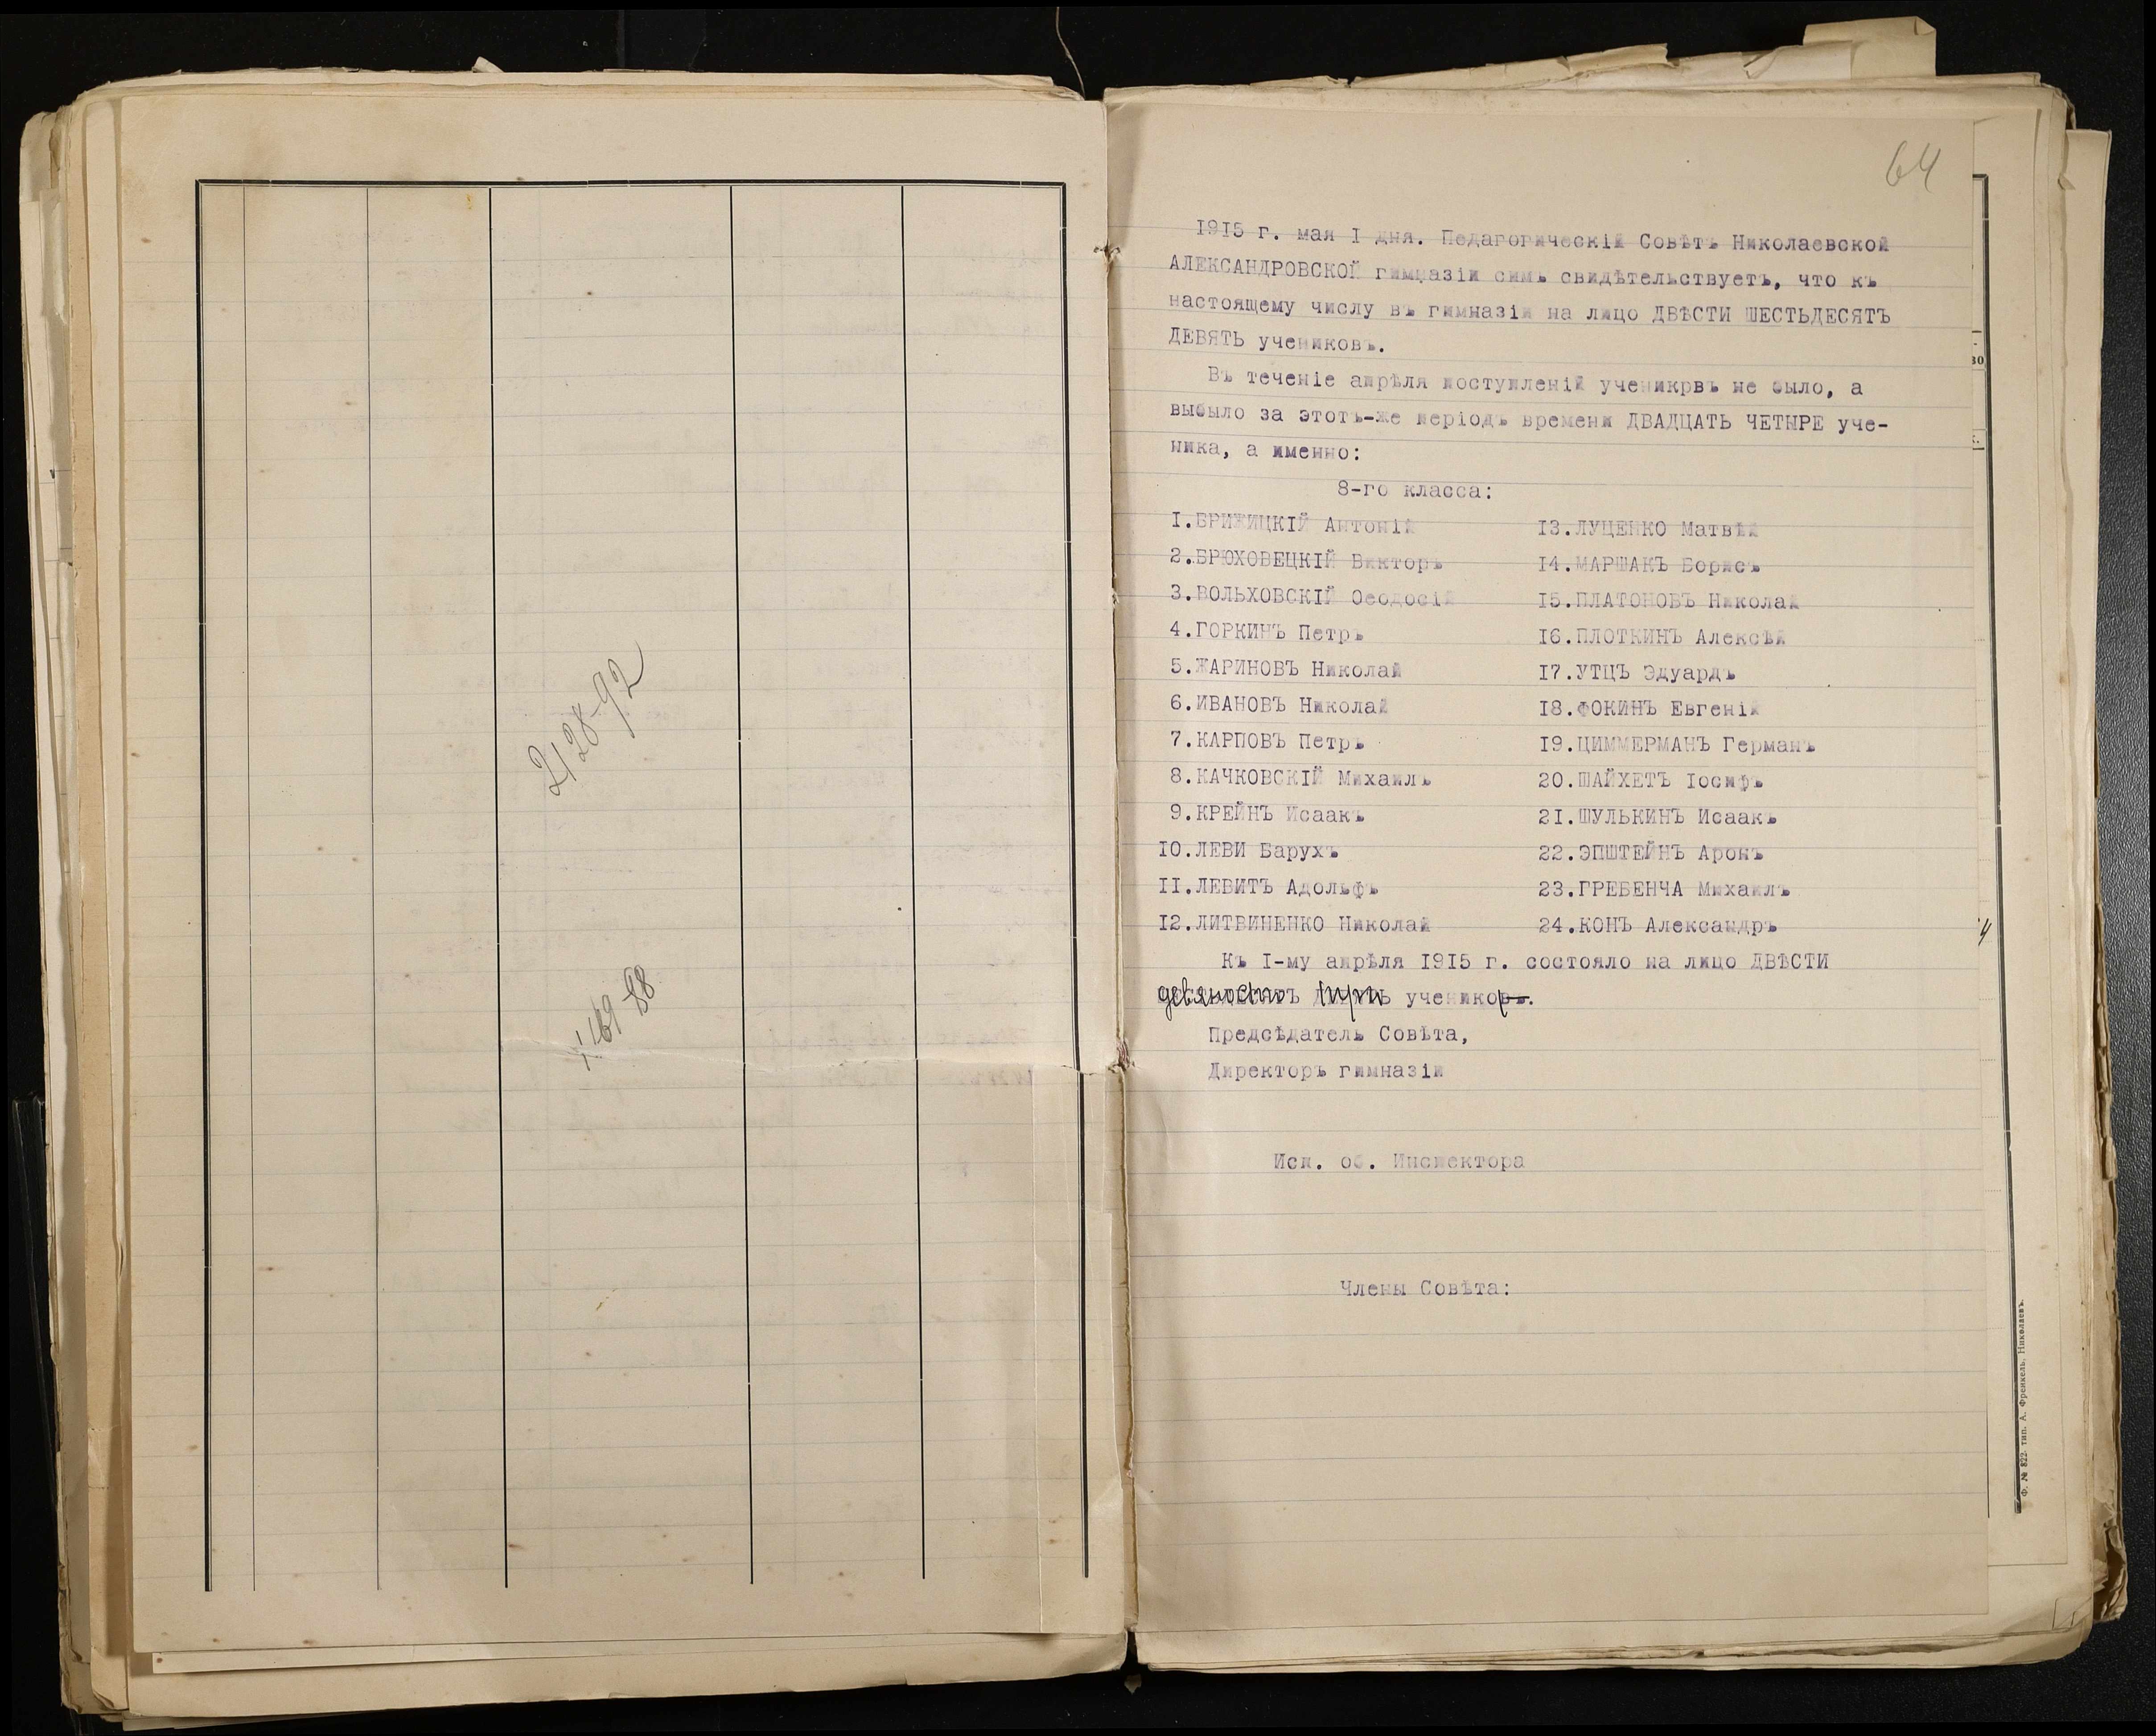 2128-92
169-88
64
1915 г. мая I дня. Педагогическій Совѣтъ Николаевской
АЛЕКСАНДРОВСКОЙ гимназіи симъ свидѣтельствуетъ, что къ
настоящему числу въ гимназіи на лицо ДВѢСТИ ШЕСТЬДЕСЯТЪ
ДЕВЯТЬ учениковъ.
Въ теченіе апрѣля поступленій ученикрвъ не было, а
выбыло за этотъ-же періодъ времени ДВАДЦАТЬ ЧЕТЫРЕ уче-
ника, а именно:
8-го класса:
I.БРИЖИЦКІЙ Антоній
2.БРЮХОВЕЦКІЙ Викторъ
3.ВОЛЬХОВСКІЙ Ѳеодосій
4.ГОРКИНЪ Петръ
5.ЖАРИНОВЪ Николай
6.ИВАНОВЪ Николай
7.КАРПОВЪ Петръ
8.КАЧКОВСКІЙ Михаилъ
9.КРЕЙНЪ Исаакъ
I0.ЛЕВИ Барухъ
II.ЛЕВИТЪ Адольфъ
I2.ЛИТВИНЕНКО Николай
I3.ЛУЦЕНКО Матвѣй
I4.МАРШАКЪ Борисъ
I5.ПЛАТОНОВЪ Николай
I6.ПЛОТКИНЪ Алексѣй
I7.УТЦЪ Эдуардъ
I8.ФОКИНЪ Евгеній
I9.ЦИММЕРМАНЪ Германъ
20.ШАЙХЕТЪ Іосифъ
2I.ШУЛЬКИНЪ Исаакъ
22.ЭПШТЕЙНЪ Аронъ
23.ГРЕБЕНЧА Михаилъ
24.КОНЪ Александръ
Къ I-му апрѣля 1915 г. состояло на лицо ДВѢСТИ
девяносто три учениковъ.
Предсѣдатель Совѣта,
Директоръ гимназіи
Исп. об. Инспектора
Члены Совѣта:
Ф. № 822. тип. А. Френкель, Николаевъ.